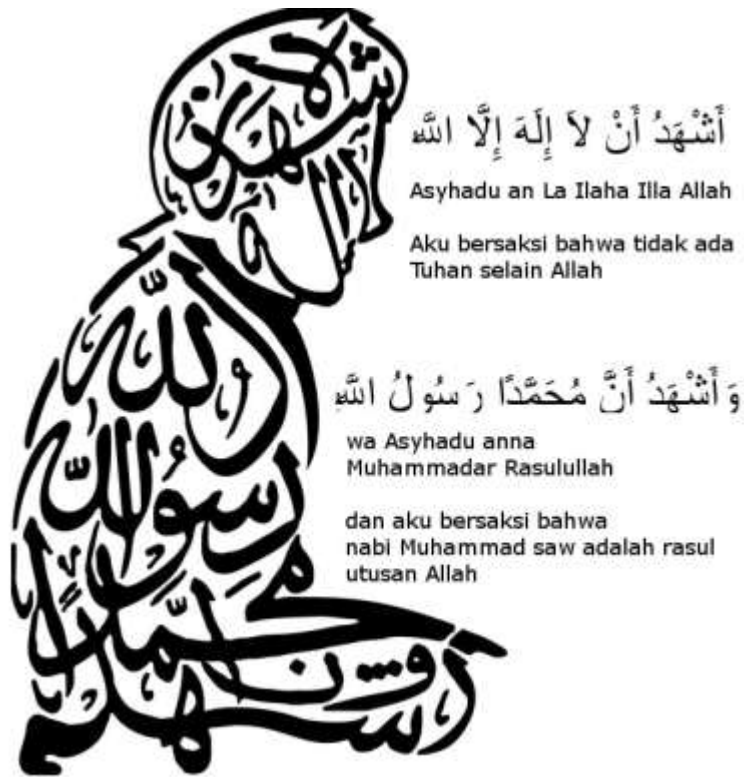 أَشْهَدُ أَنْ لاَ إِلَهَ إِلَّا اللَّهِ
Asyhadu an La Ilaha Illa Allah
Aku bersaksi bahwa tidak ada
Tuhan selain Allah
وَ أَشْهَدُ أَنَّ مُحَمَّدًا رَ سُولُ اللَّهِ
wa Asyhadu anna
Muhammadar Rasulullah
dan aku bersaksi bahwa
nabi Muhammad saw adalah rasul
utusan Allah